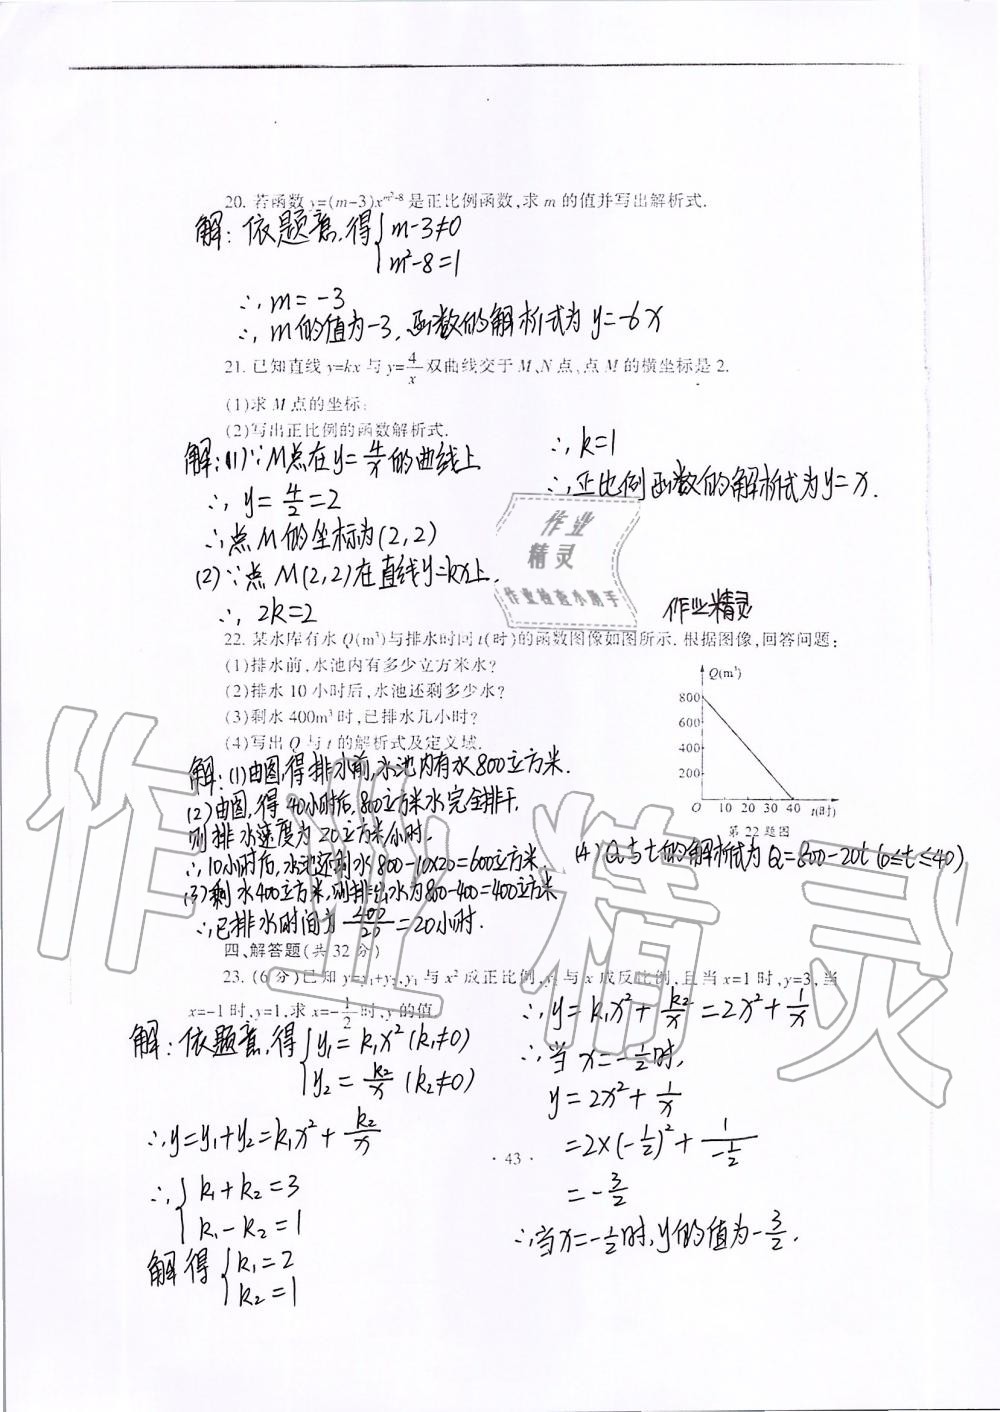 20. 若函数 y=(m-3)x^{m²-8} 是正比例函数,求 m 的值并写出解析式.
解: 依题意,得{m-3≠0
m²-8=1
∴ m=-3
∴ m的值为-3, 函数的解析式为 y=-6x
21. 已知直线 y=kx 与 y=4/x 双曲线交于 M、N 点,点 M 的横坐标是 2.
(1)求 M 点的坐标;
(2)写出正比例的函数解析式.
解:(1)∵M点在y=4/x的曲线上
∴ y=4/2=2
∴点M的坐标为(2,2)
(2)∵点M(2,2)在直线y=kx上.
∴ 2k=2
∴ k=1
∴正比例函数的解析式为y=x.
作业
精灵
作业检查小帮手
作业精灵
22. 某水库有水 Q(m³)与排水时间 t(时)的函数图像如图所示.根据图像,回答问题:
(1)排水前,水池内有多少立方米水?
(2)排水 10 小时后,水池还剩多少水?
(3)剩水 400m³ 时,已排水几小时?
(4)写出 Q 与 t 的解析式及定义域.
Q(m³)
800
600
400
200
O 10 20 30 40 t(时)
第 22 题图
解:(1)由图,得排水前,水池内有水800立方米.
(2)由图,得40小时后,800立方米水完全排干,
则排水速度为20立方米/小时.
∴10小时后,水池还剩水800-10×20=600立方米.
(3)剩水400立方米,则排出水为800-400=400立方米
∴已排水时间为400/20=20小时.
(4)Q与t的解析式为Q=800-20t(0≤t≤40)
四、解答题(共 32 分)
23. (6 分)已知 y=y₁+y₂,y₁ 与 x² 成正比例,y₂ 与 x 成反比例,且当 x=1 时,y=3,当
x=-1 时,y=1.求 x=-1/2 时,y 的值.
解: 依题意,得{y₁=k₁x²(k₁≠0)
y₂=k₂/x (k₂≠0)
∴y=y₁+y₂=k₁x²+k₂/x
∴{k₁+k₂=3
k₁-k₂=1
解得{k₁=2
k₂=1
∴y=k₁x²+k₂/x=2x²+1/x
∴当x=-1/2时,
y=2x²+1/x
=2×(-1/2)²+1/(-1/2)
=-3/2
∴当x=-1/2时,y的值为-3/2.
· 43 ·
作业精灵